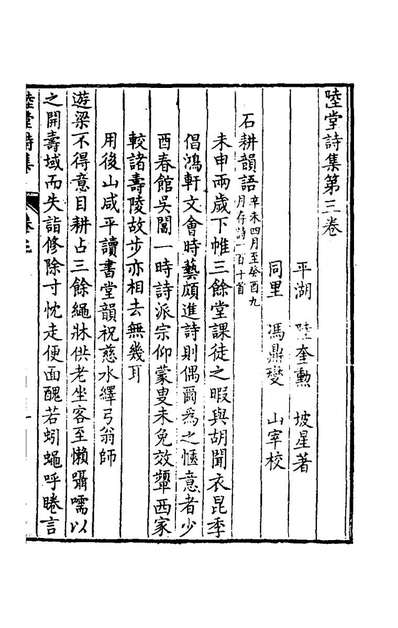 陸堂詩集第三卷
平湖 陸奎勳 坡星著
同里 馮鼎燮 山宰校
石耕韻語辛未四月至癸酉九月存詩一百十首
未申兩歲下帷三餘堂課徒之暇與胡聞衣昆季
倡鴻軒文會時藝頗進詩則偶爾為之愜意者少
酉春館吳閶一時詩派宗仰蒙叟未免效顰西家
較諸壽陵故步亦相去無幾耳
用後山咸平讀書堂韻祝慈水繹弓翁師
遊梁不得意目耕占三餘繩牀供老坐客至懶躡嚅以
之開壽域而失詣修除寸忱走便面醜若蚓蠅呼睠言
陸堂詩集
卷三
一